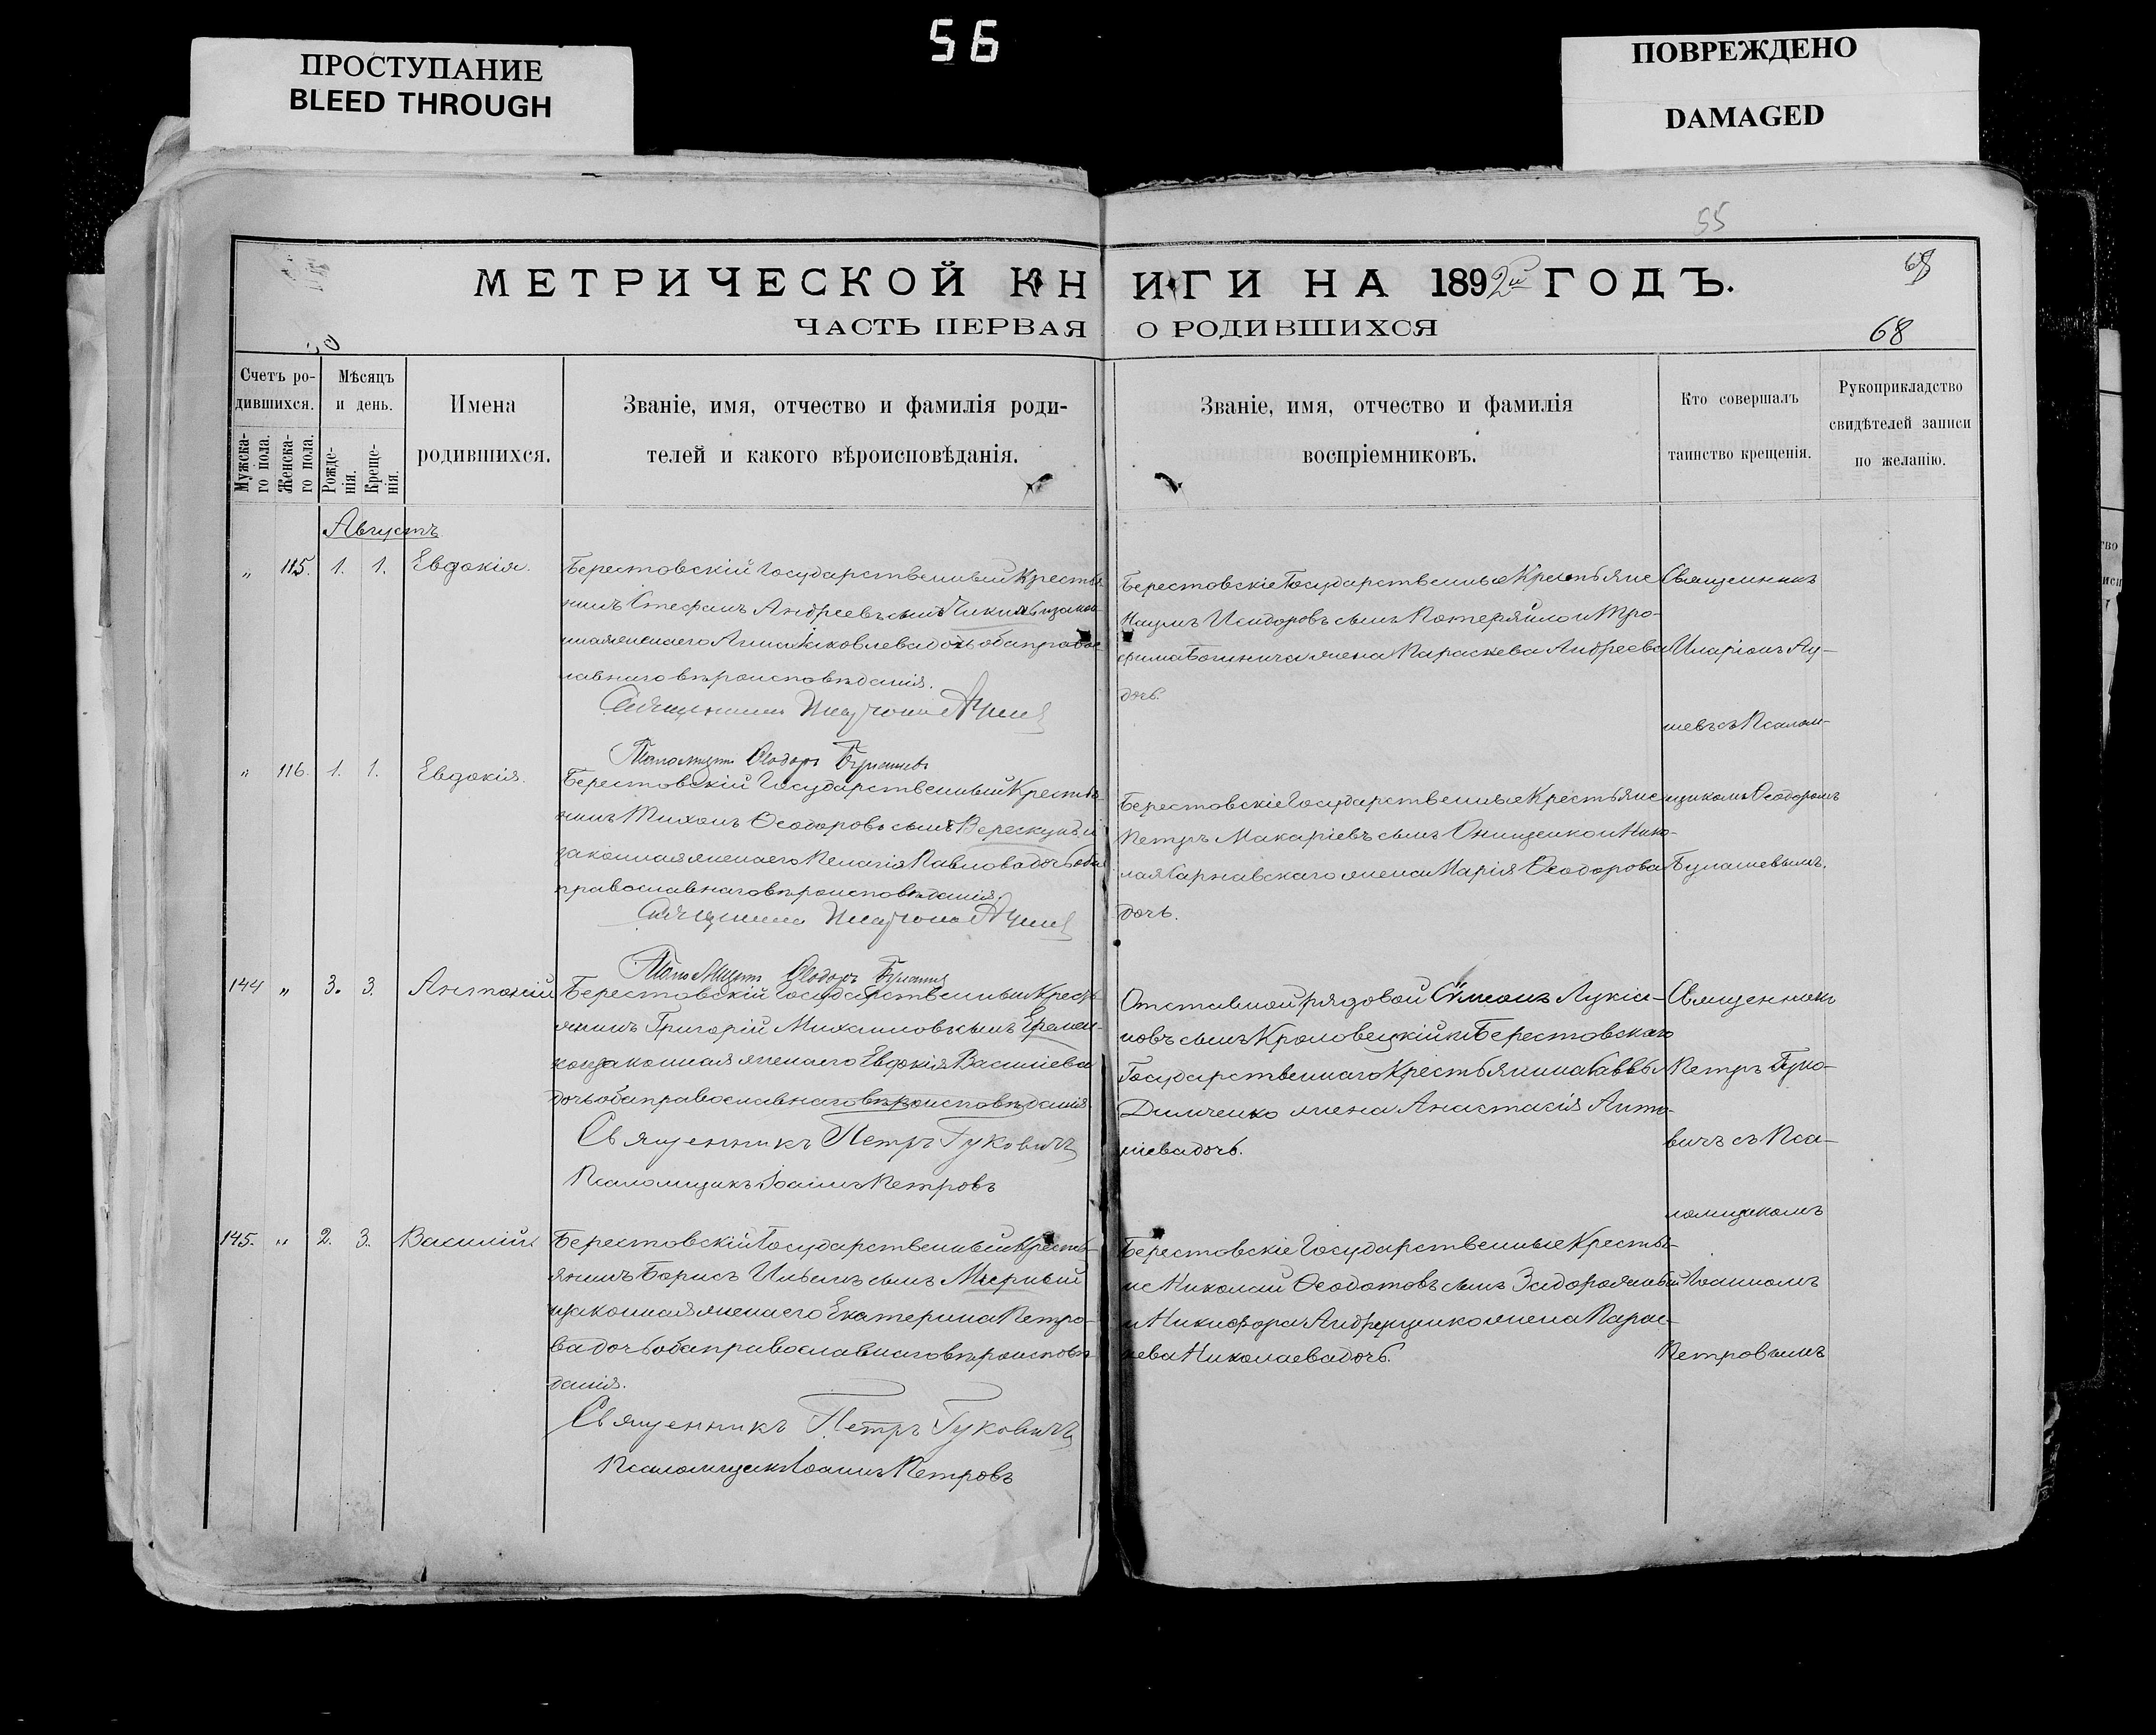 56
ПРОСТУПАНИЕ
BLEED THROUGH
ПОВРЕЖДЕНО
DAMAGED
55
МЕТРИЧЕСКОЙ КНИГИ НА 1892й ГОДЪ.
ЧАСТЬ ПЕРВАЯ О РОДИВШИХСЯ
68
Счетъ ро-
дившихся.
Мужска-
го пола.
Женска-
го пола.
Мѣсяцъ
и день.
Рожде-
нія.
Креще-
нія.
Имена
родившихся.
Званіе, имя, отчество и фамилія роди-
телей и какого вѣроисповѣданія.
Званіе, имя, отчество и фамилія
воспріемниковъ.
Кто совершалъ
таинство крещенія.
Рукоприкладство
свидѣтелей записи
по желанію.
Августъ
„ 115. 1. 1. Евдокія.
Берестовскій Государственный Крестья
нинъ Стефанъ Андреевъ сынъ
ная жена его Анна Іаковлева дочь оба правос
лавнаго вѣроисповѣданія.
Священникъ Иларіонъ
Псаломщикъ Ѳеодоръ
Берестовскіе Государственные Крестьяне
Наумъ Исидоровъ сынъ Потеряйло и Тро-
фима жена Параскева Андреева
дочь.
Священникъ
Иларіонъ Лу-
шевъ съ Псалом-
щикомъ Ѳеодоромъ
„ 116. 1. 1. Евдокія.
Берестовскій Государственный Крестья
нинъ Тихонъ Ѳеодоровъ сынъ
законная жена его Пелагія Павлова дочь оба
православнаго вѣроисповѣданія.
Священникъ Иларіонъ
Псаломщикъ Ѳеодоръ
Берестовскіе Государственные Крестьяне
Петръ Макаріевъ сынъ Онищенко и Нико-
лая жена Марія Ѳеодорова
дочь.
144 „ 3. 3. Антоній
Берестовскій Государственный Кресть-
янинъ Григорій Михаиловъ сынъ Еремен-
ко и законная жена его Евдокія Васильева
дочь оба православнаго вѣроисповѣданія.
Священникъ Петръ Гуковичъ
Псаломщикъ Іоаннъ Петровъ
Отставной рядовой Сѵмеонъ Лукіа-
новъ сынъ Кроловецкій и Берестовскаго
Государственнаго Крестьянина Саввы
Димченко жена Анастасія Анто-
ніева дочь.
Священникъ
Петръ Гуко-
вичъ съ Пса-
ломщикомъ
145. „ 2. 3. Василій
Берестовскій Государственный Кресть-
янинъ Борисъ Ильинъ сынъ
и законная жена его Екатерина Петро-
ва дочь оба православнаго вѣроисповѣ
данія.
Священникъ Петръ Гуковичъ
Псаломщикъ Іоаннъ Петровъ
Берестовскіе Государственные Крестья-
не Николай Ѳеодотовъ сынъ Задорожный
и Никифора Андрущенко жена Парас-
кева Николаева дочь.
Іоанномъ
Петровымъ